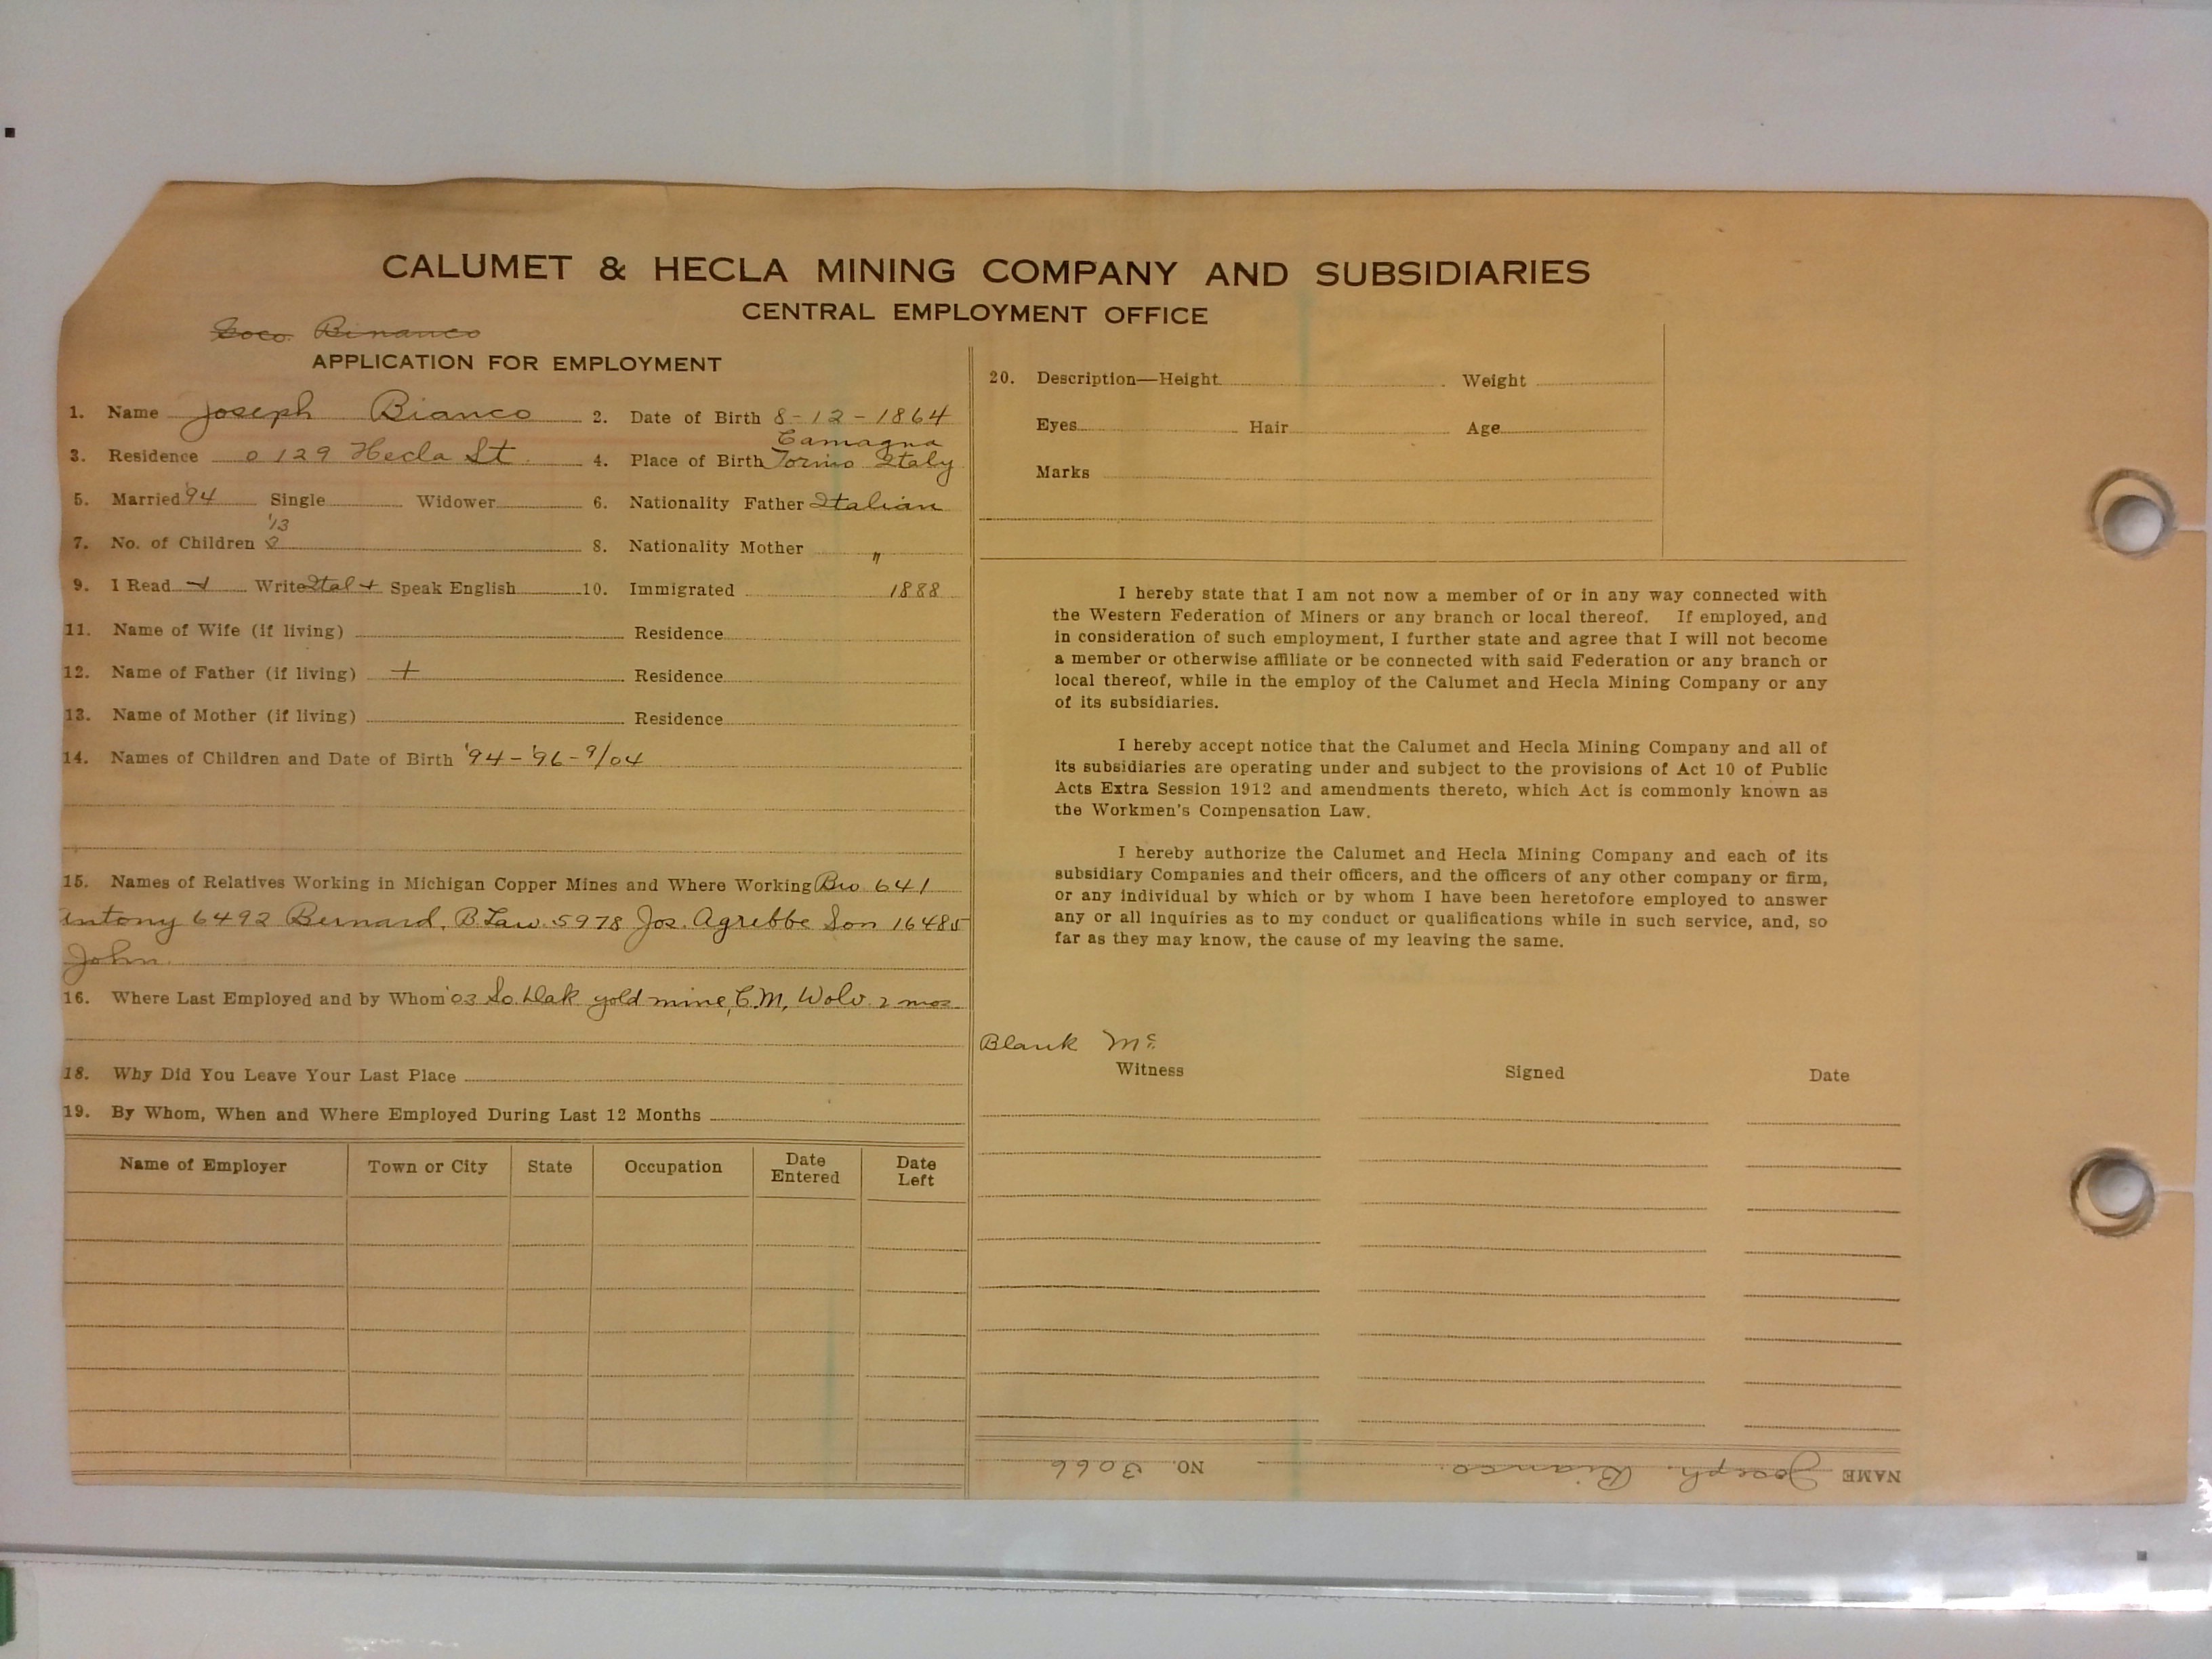 CALUMET & HECLA MINING COMPANY AND SUBSIDIARIES
CENTRAL EMPLOYMENT OFFICE
Binanco
APPLICATION FOR EMPLOYMENT
1. Name Joseph Bianco 2. Date of Birth 8-12-1864
Camagna
3. Residence 0129 Hecla St. 4. Place of Birth Torino Italy
5. Married '94 Single Widower 6. Nationality Father Italian
'13
7. No. of Children 2 8. Nationality Mother "
9. I Read Write Ital + Speak English 10. Immigrated 1888
11. Name of Wife (if living) Residence
12. Name of Father (if living) + Residence
13. Name of Mother (if living) Residence
14. Names of Children and Date of Birth '94-'96-9/04
15. Names of Relatives Working in Michigan Copper Mines and Where Working Bro 641
Antony 6492 Bernard, B. Law. 5978 Jos. Agrebbe Son 16485
John.
16. Where Last Employed and by Whom '03 So. Dak gold mine, C.M, Wolv. 2 mos
18. Why Did You Leave Your Last Place
19. By Whom, When and Where Employed During Last 12 Months
Name of Employer Town or City State Occupation Date Entered Date Left
20. Description—Height Weight
Eyes Hair Age
Marks
I hereby state that I am not now a member of or in any way connected with
the Western Federation of Miners or any branch or local thereof. If employed, and
in consideration of such employment, I further state and agree that I will not become
a member or otherwise affiliate or be connected with said Federation or any branch or
local thereof, while in the employ of the Calumet and Hecla Mining Company or any
of its subsidiaries.
I hereby accept notice that the Calumet and Hecla Mining Company and all of
its subsidiaries are operating under and subject to the provisions of Act 10 of Public
Acts Extra Session 1912 and amendments thereto, which Act is commonly known as
the Workmen's Compensation Law.
I hereby authorize the Calumet and Hecla Mining Company and each of its
subsidiary Companies and their officers, and the officers of any other company or firm,
or any individual by which or by whom I have been heretofore employed to answer
any or all inquiries as to my conduct or qualifications while in such service, and, so
far as they may know, the cause of my leaving the same.
Blank Mc
Witness Signed Date
NAME Joseph Bianco. NO. 3066